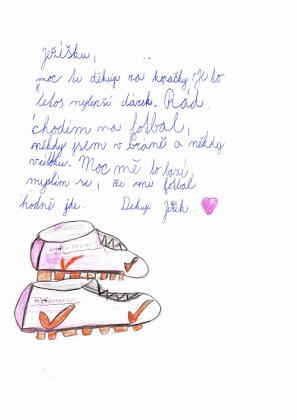 Ježíšku,
moc ti děkuji za kopačky. Je to
letos nejlepší dárek. Rád
chodím na fotbal,
někdy jsem v bráně a někdy
Moc mě to baví,
myslím si, že mi fotbal
hodně jde. Děkuji Jiřík.